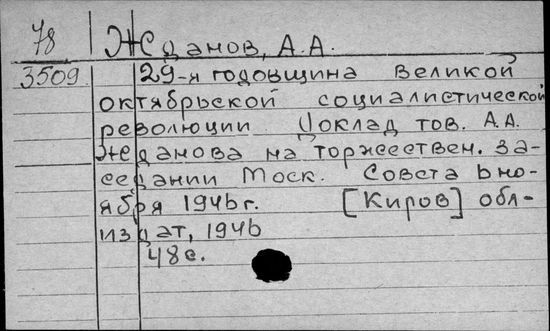 78 Жданов, А.А.
3509. 29-я годовщина Великой
октябрьской социалистической
революции Доклад тов. А.А.
Жданова на торжествен. за-
седании Моск. Совета 6 но-
ября 1946 г. [Киров] обл-
издат, 1946
48 с.